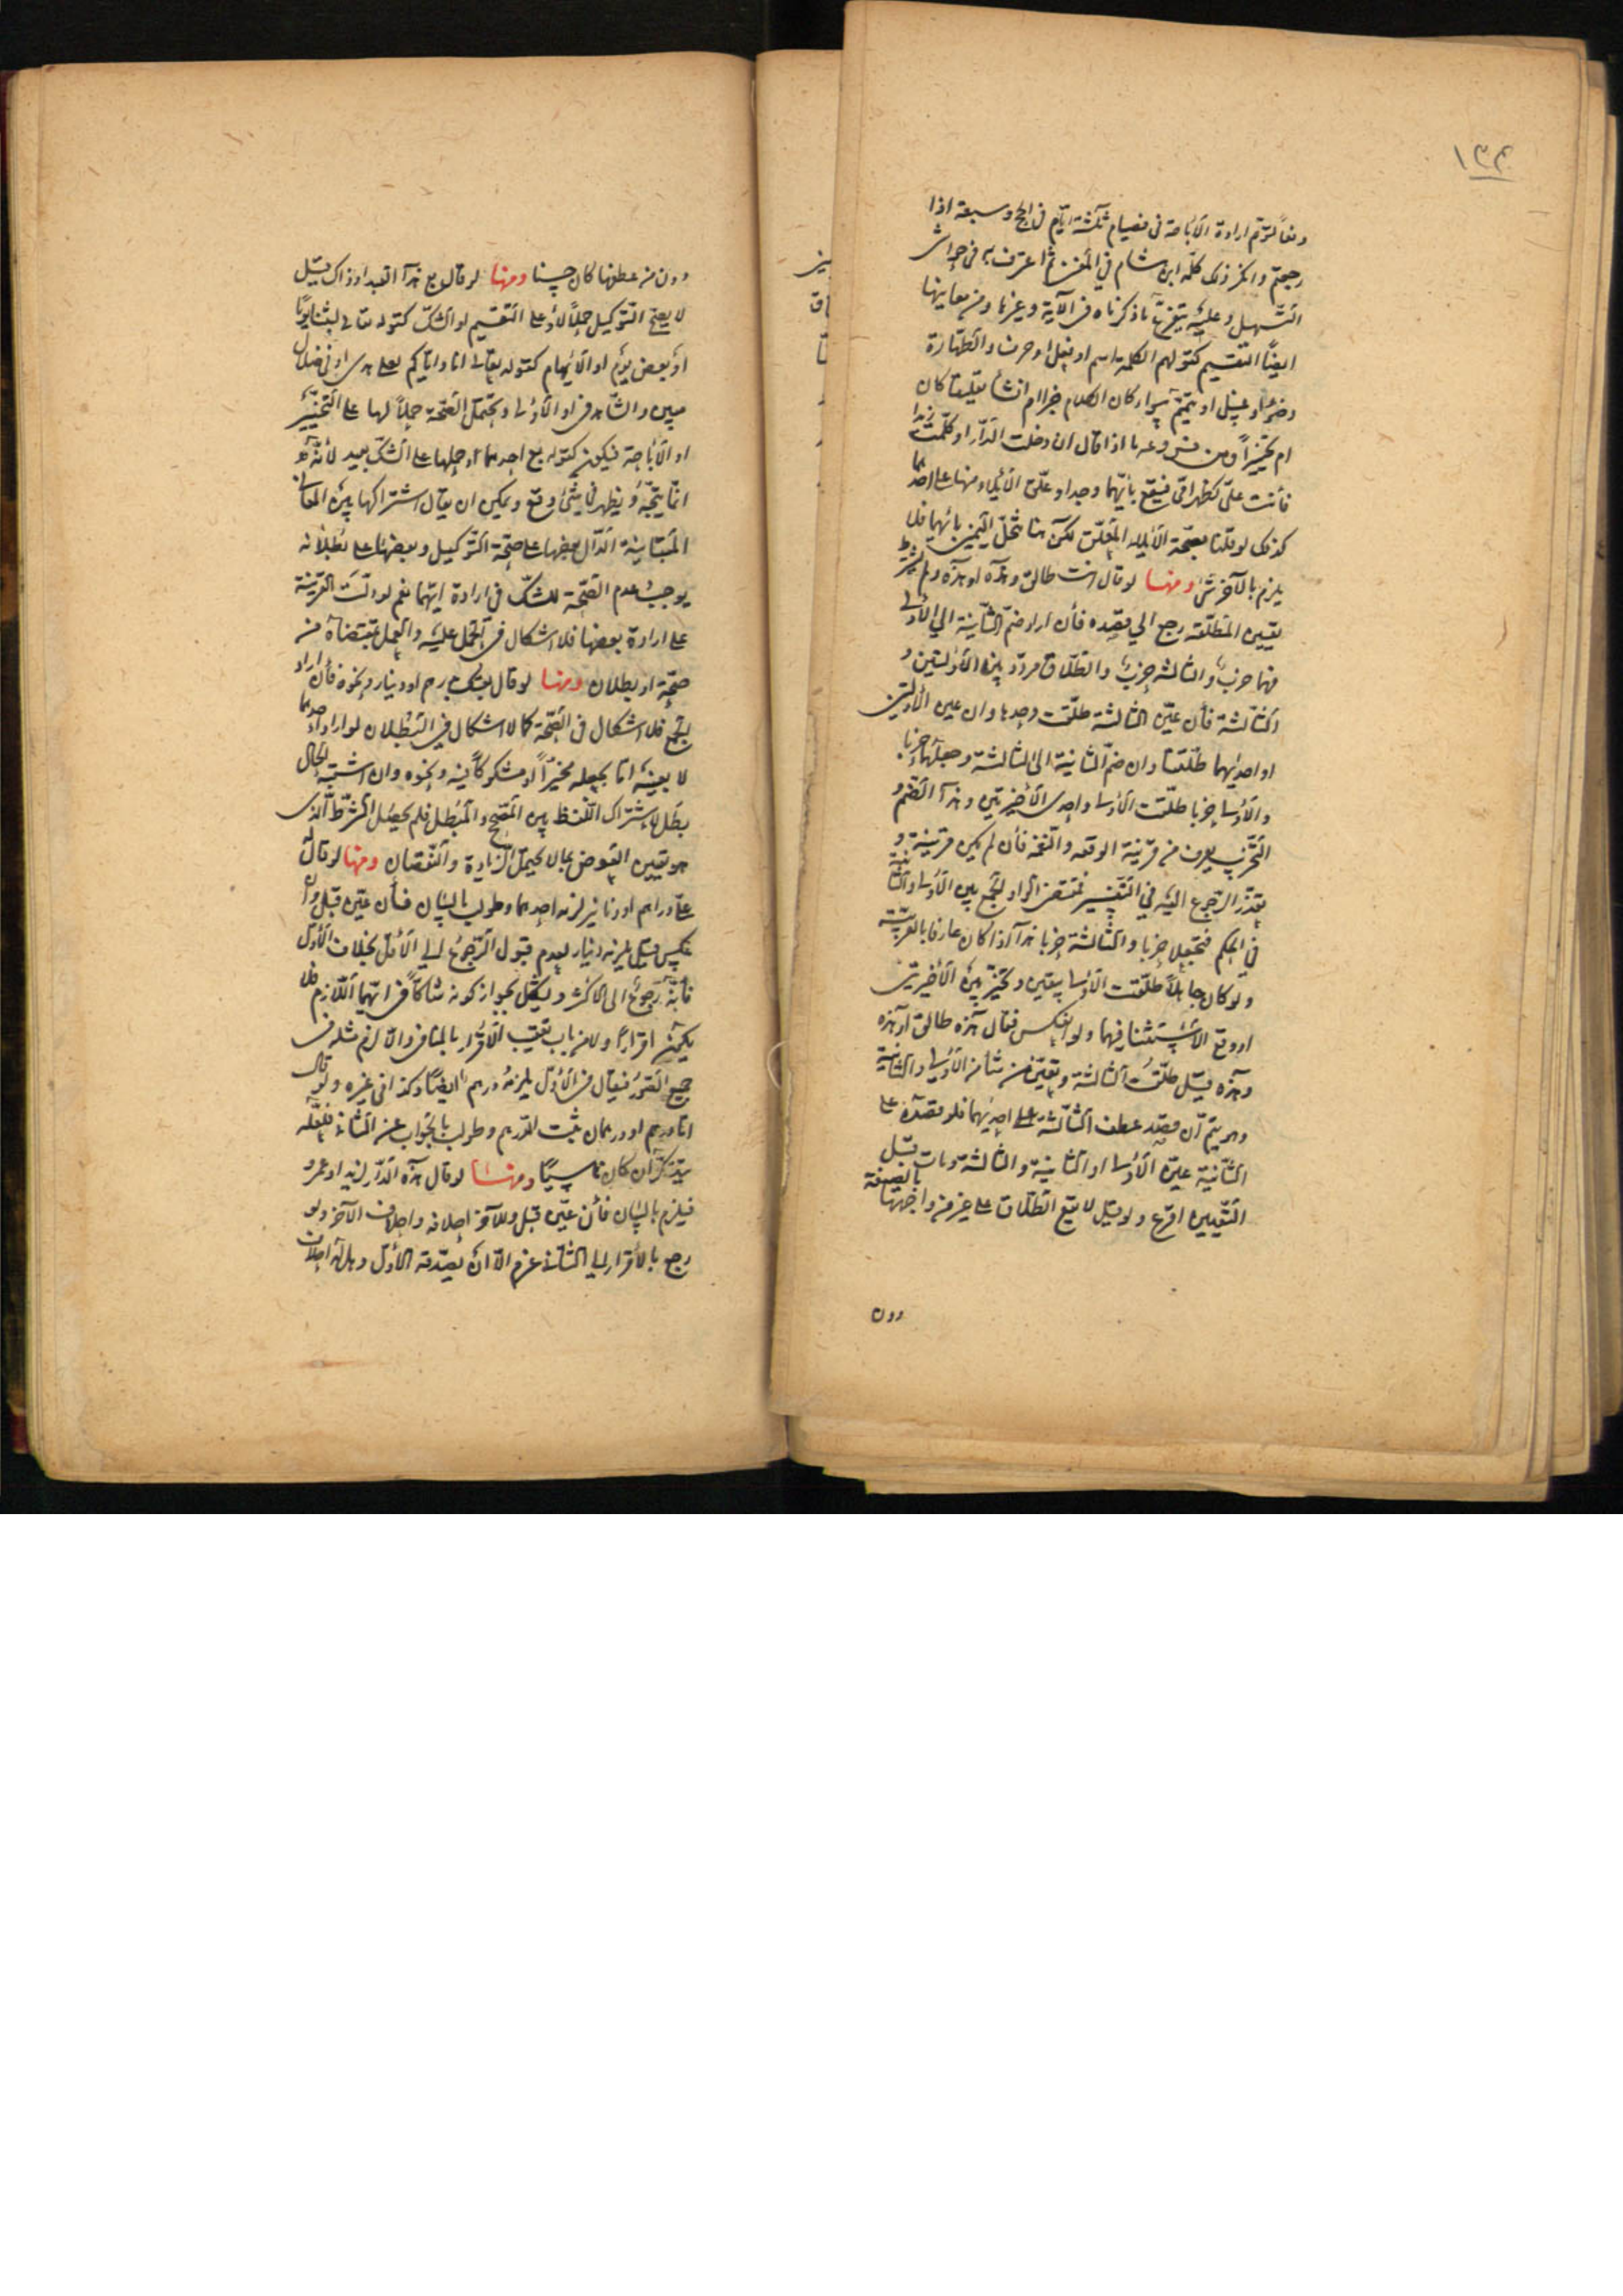 ١٣٤
دفعاً لتوهم ارادة الأباحة في فصيام ثلثة ايّام في الحج وسبعة اذا
رجعتم وانكر ذلك كلّه ابن هشام في المغني ثم اعترف به في حواشي
التسهيل وعليه يتفرع ما ذكرناه في الآية وغيرها ومن معانيها
ايضًا التقسيم كقولهم الكلمة اسم او فعل او حرف والطهارة
وضوء او غسل او تيمم سواء كان الكلام خبرا ام انشاء تعليقا كان
ام تنجيزاً ومن فروعه ما اذا قال ان دخلت الدّار او كلّمت زيدا
فأنت عليّ كظهر امّي فيقع بأيّهما وجد او علّق الأيلاء ومنها على احدهما
كذلك لو قلنا بصحّة الأيلاء المعلّق لكن هنا تنحلّ اليمين بأيّهما فلا
يلزم بالآخر شئ ومنها لو قال انت طالق وهذه او هذه ولم يشترط
تعيين المطلّقة رجع الي قصده فأن اراد ضمّ الثانية الي الأولي
فهما حزب والثالثة حزب والطلاق مردّد بين الأوليتين و
الثالثة فأن عيّن الثالثة طلّقت وحدها وان عين الأوليتين
او احديهما طلّقتا وان ضمّ الثانية الى الثالثة وجعلهما حزبا
والأولى حزبا طلّقت الأولى واحدى الأخيرتين وهذا الضم و
التحزب يعرف من قرينة الوقفة والنغمة فأن لم يكن قرينة و
تعذّر الرجوع اليه في التفسير فمقتضى الواو الجمع بين الأولى والثانية
في الحكم فتجعلا حزبا والثالثة حزبا هذا اذا كان عارفا بالعربية
ولو كان جاهلاً طلّقت الأولى بيقين وتخيّر بين الأخيرتين
او وقع الأستثناء فيهما ولو انعكس فقال هذه طالق او هذه
وهذه قيل طلّقت الثالثة وتعيّن من شاء من الأولى والثانية
وهو يتمّ ان قصد عطف الثالثة على احديهما فلو قصده على
الثانية عيّن الأولى او الثانية والثالثة ومات قبل
التعيين اقرع ولو قيل لا تقع الطلاق على غير من واجهها بالصيغة
دون
دون من عطفها كان حسنا ومنها لو قال بع هذا العبد او ذاك قيل
لا يصح التوكيل حملاً لأو على التقسيم او الشك كقوله تعالى لبثنا يومًا
او بعض يوم او الأبهام كقوله تعالى انا واياكم لعلى هدى او في ضلال
مبين والشاهد في او الأولى ويحتمل الصّحة حملاً لها على التخيير
او الأباحة فيكون كقوله بع احدهما او حملها على الشك بعيد لأنّه
انّما يتجه ويظهر في شئ وقع ويمكن ان يقال اشتراكها بين المعاني
المتباينة الدّال بعضها على صحّة التوكيل وبعضها على بطلانه
يوجب عدم الصّحة للشك في ارادة ايّهما نعم لو دلت القرينة
على ارادة بعضها فلا اشكال في الحمل عليه والعمل بمقتضاه من
صحّة او بطلان ومنها لو قال بعتك بدرهم او دينار ونحوه فأن اراد
الجمع فلا اشكال في الصّحة كما لا اشكال في البطلان لو اراد احدهما
لا بعينه امّا بجعله مخيّراً او مشكوكاً فيه ونحوه وان اشتبه الحال
بطل لاشتراك اللفظ بين المصحّح والمبطل فلم يحصل الشرط الذي
هو تعيين العوض بما لا يحتمل الزيادة والنقصان ومنها لو قال له
عليّ دراهم او دنانير لزمه احدهما وطولب بالبيان فأن عيّن قبل وان
عكس قيل يلزمه دينار لعدم قبول الرجوع الي الأقل بخلاف الأول
فأنّه رجوع الى الاكثر ويشكل بجواز كونه شاكاً في ايّهما اللازم فلا
يكون اقرارا ولا من باب تعقيب الأقرار بالمنافي والا لزم مثله في
جميع الصور فيقال في الأول يلزمه درهم ايضًا وكذا في غيره ولو قال
امّا درهم او درهمان ثبت الدرهم وطولب بالجواب عن الثاني فلعلّه
يتذكر ان كان ناسيًا ومنها لو قال هذه الدّار لزيد او عمرو
فيلزم بالبيان فأن عيّن قبل وللآخر احلافه واحلاف الآخر ولو
رجع بالأقرار الى الثاني غرم الّا ان يصدّقه الأول وهل له احلاف